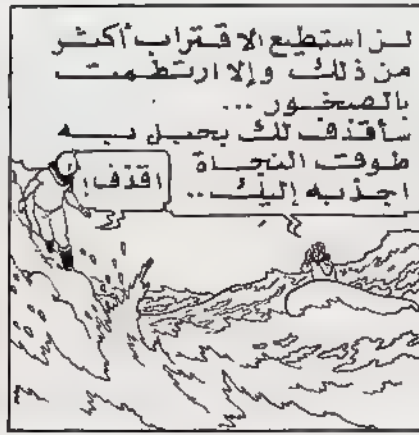 لن استطيع الاقتراب أكثر
من ذلك وإلا ارتطمت
بالصخور ...
سأقذف لك بحبل به
طوق النجاة
اجذبه إليك ..
اقذف!